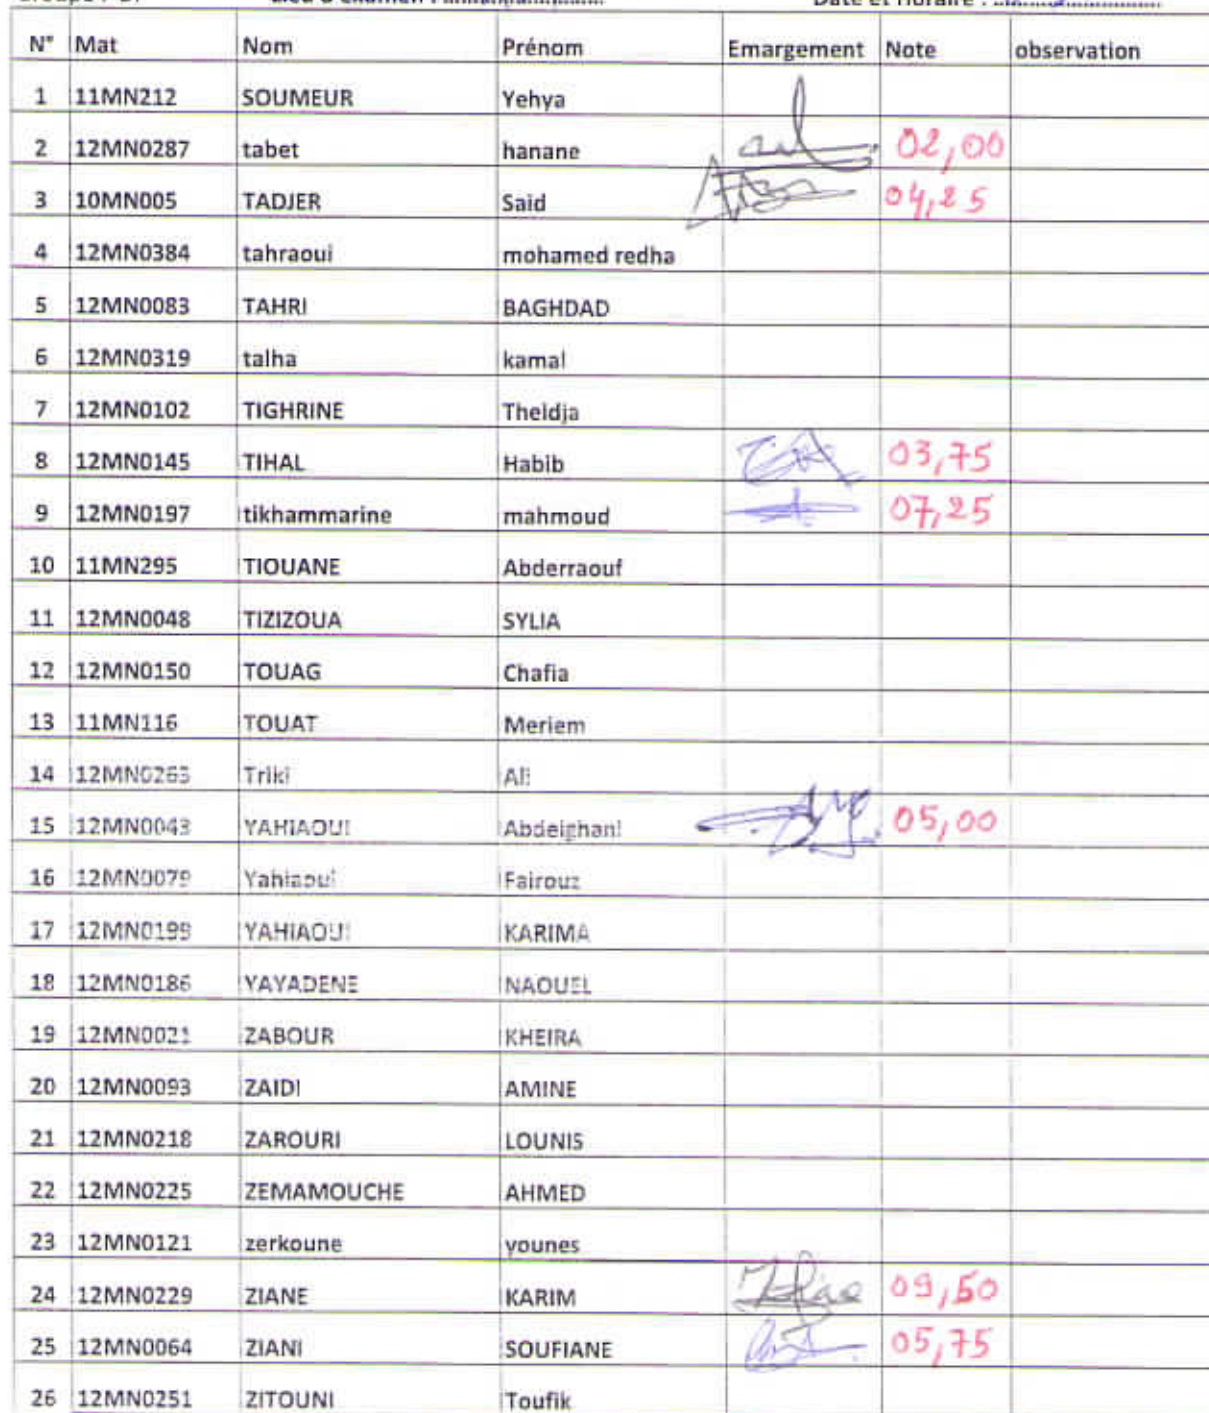 N° Mat Nom Prénom Emargement Note observation
1 11MN212 SOUMEUR Yehya
2 12MN0287 tabet hanane 02,00
3 10MN005 TADJER Said 04,25
4 12MN0384 tahraoui mohamed redha
5 12MN0083 TAHRI BAGHDAD
6 12MN0319 talha kamal
7 12MN0102 TIGHRINE Theldja
8 12MN0145 TIHAL Habib 03,75
9 12MN0197 tikhammarine mahmoud 07,25
10 11MN295 TIOUANE Abderraouf
11 12MN0048 TIZIZOUA SYLIA
12 12MN0150 TOUAG Chafia
13 11MN116 TOUAT Meriem
14 12MN0263 Triki Ali
15 12MN0043 YAHIAOUI Abdelghani 05,00
16 12MN0079 Yahiaoui Fairouz
17 12MN0199 YAHIAOUI KARIMA
18 12MN0186 YAYADENE NAOUEL
19 12MN0021 ZABOUR KHEIRA
20 12MN0093 ZAIDI AMINE
21 12MN0218 ZAROURI LOUNIS
22 12MN0225 ZEMAMOUCHE AHMED
23 12MN0121 zerkoune younes
24 12MN0229 ZIANE KARIM 09,50
25 12MN0064 ZIANI SOUFIANE 05,75
26 12MN0251 ZITOUNI Toufik